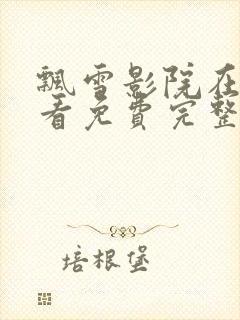 飘雪影院在
看免费完整
培根堡